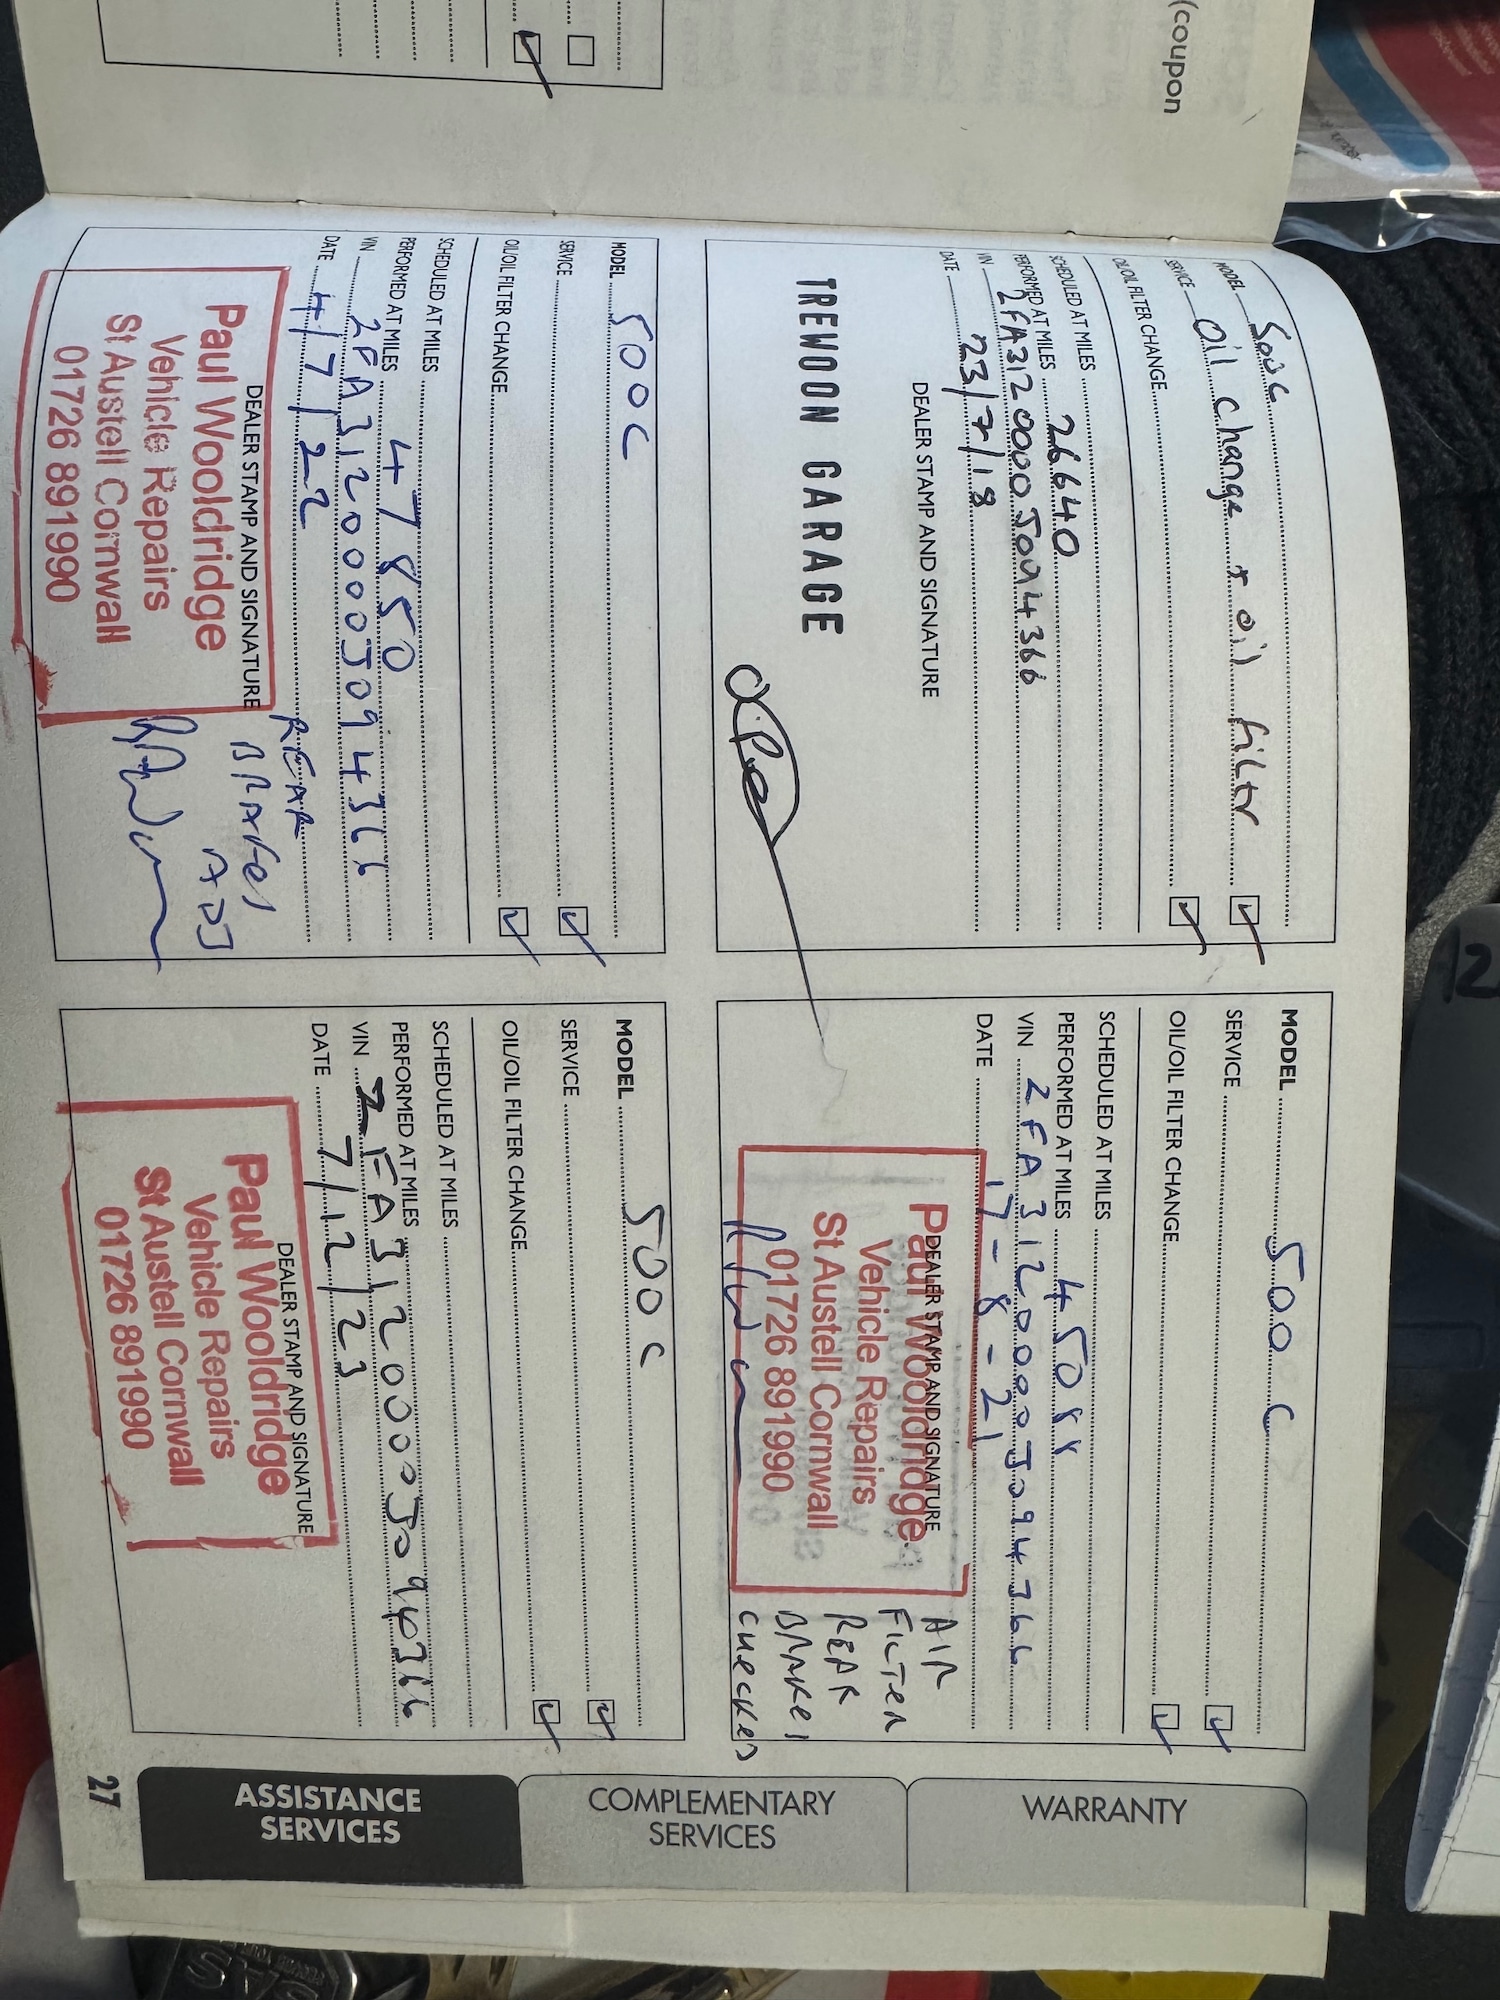 (coupon
MODEL 500C
SERVICE Oil change + oil filtr
OIL/OIL FILTER CHANGE
SCHEDULED AT MILES
PERFORMED AT MILES 26640
VIN 2FA3120000J094366
DATE 23/7/18
DEALER STAMP AND SIGNATURE
TREWOON GARAGE
MODEL 500C
SERVICE
OIL/OIL FILTER CHANGE
SCHEDULED AT MILES
PERFORMED AT MILES 45088
VIN 2FA3120000J094366
DATE 17-8-21
DEALER STAMP AND SIGNATURE
Paul Wooldridge
Vehicle Repairs
St Austell Cornwall
01726 891990
AIR
FILTER
REAR
BRAKES
CHECKED
MODEL 500C
SERVICE
OIL/OIL FILTER CHANGE
SCHEDULED AT MILES
PERFORMED AT MILES 47850
VIN 2FA3120000J094366
DATE 4/7/22
DEALER STAMP AND SIGNATURE
Paul Wooldridge
Vehicle Repairs
St Austell Cornwall
01726 891990
REAR
BRAKES
ADJ
MODEL 500C
SERVICE
OIL/OIL FILTER CHANGE
SCHEDULED AT MILES
PERFORMED AT MILES
VIN 2FA3120000J094366
DATE 7/12/23
DEALER STAMP AND SIGNATURE
Paul Wooldridge
Vehicle Repairs
St Austell Cornwall
01726 891990
WARRANTY
COMPLEMENTARY
SERVICES
ASSISTANCE
SERVICES
27